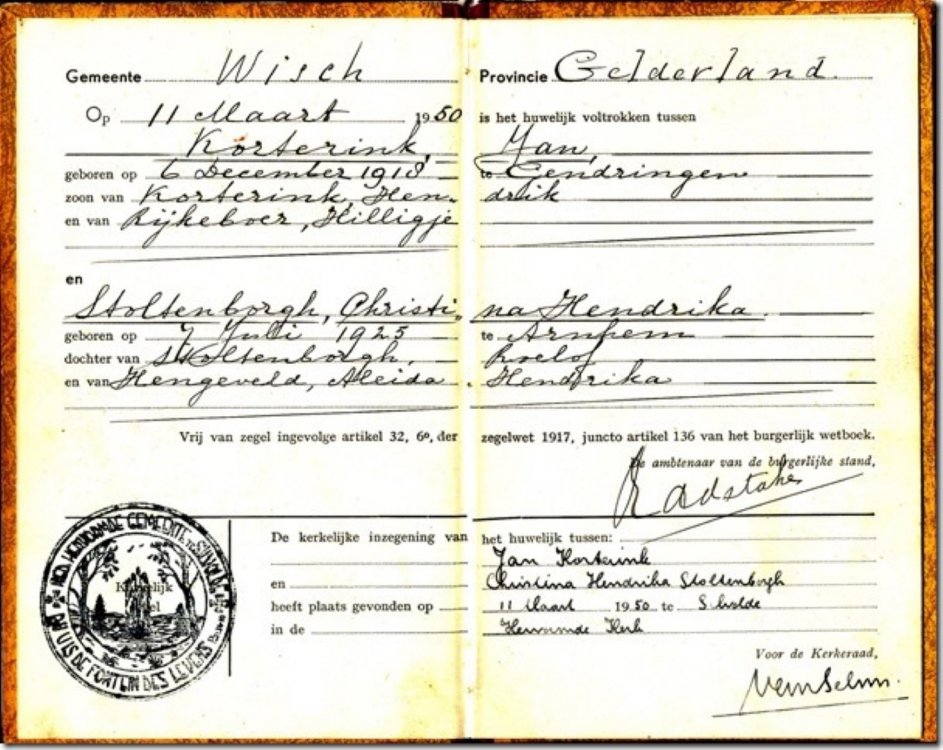 Gemeente Wisch Provincie Gelderland.
Op 11 Maart 1950 is het huwelijk voltrokken tussen
Korterink, Jan,
geboren op 6 December 1918 te Gendringen
zoon van Korterink, Hen- drik
en van Rijkeboer, Hilligje
en
Stoltenborgh, Christi- na Hendrika.
geboren op 7 Juli 1925 te Arnhem
dochter van Stoltenborgh, Roelof
en van Hengeveld, Aleida Hendrika
Vrij van zegel ingevolge artikel 32, 6º, der zegelwet 1917, juncto artikel 136 van het burgerlijk wetboek.
De ambtenaar van de burgerlijke stand,
Radstake
De kerkelijke inzegening van het huwelijk tussen:
Jan Korterink
en Christina Hendrika Stoltenborgh
heeft plaats gevonden op 11 Maart 1950 te
in de Kerk
Voor de Kerkeraad,
NED. HERVORMDE GEMEENTE
GOD IS DE FONTEIN DES LEVENS